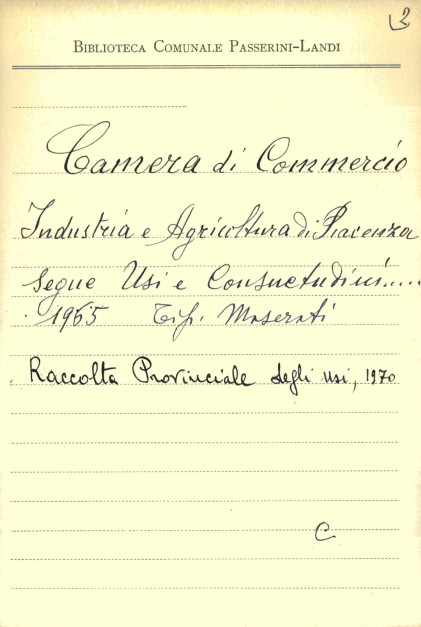 2
BIBLIOTECA COMUNALE PASSERINI-LANDI
Camera di Commercio
Industria e Agricoltura di Piacenza
segue Usi e Consuetudini.....
1965 Tip. Maserati
Raccolta Provinciale degli usi, 1970
C